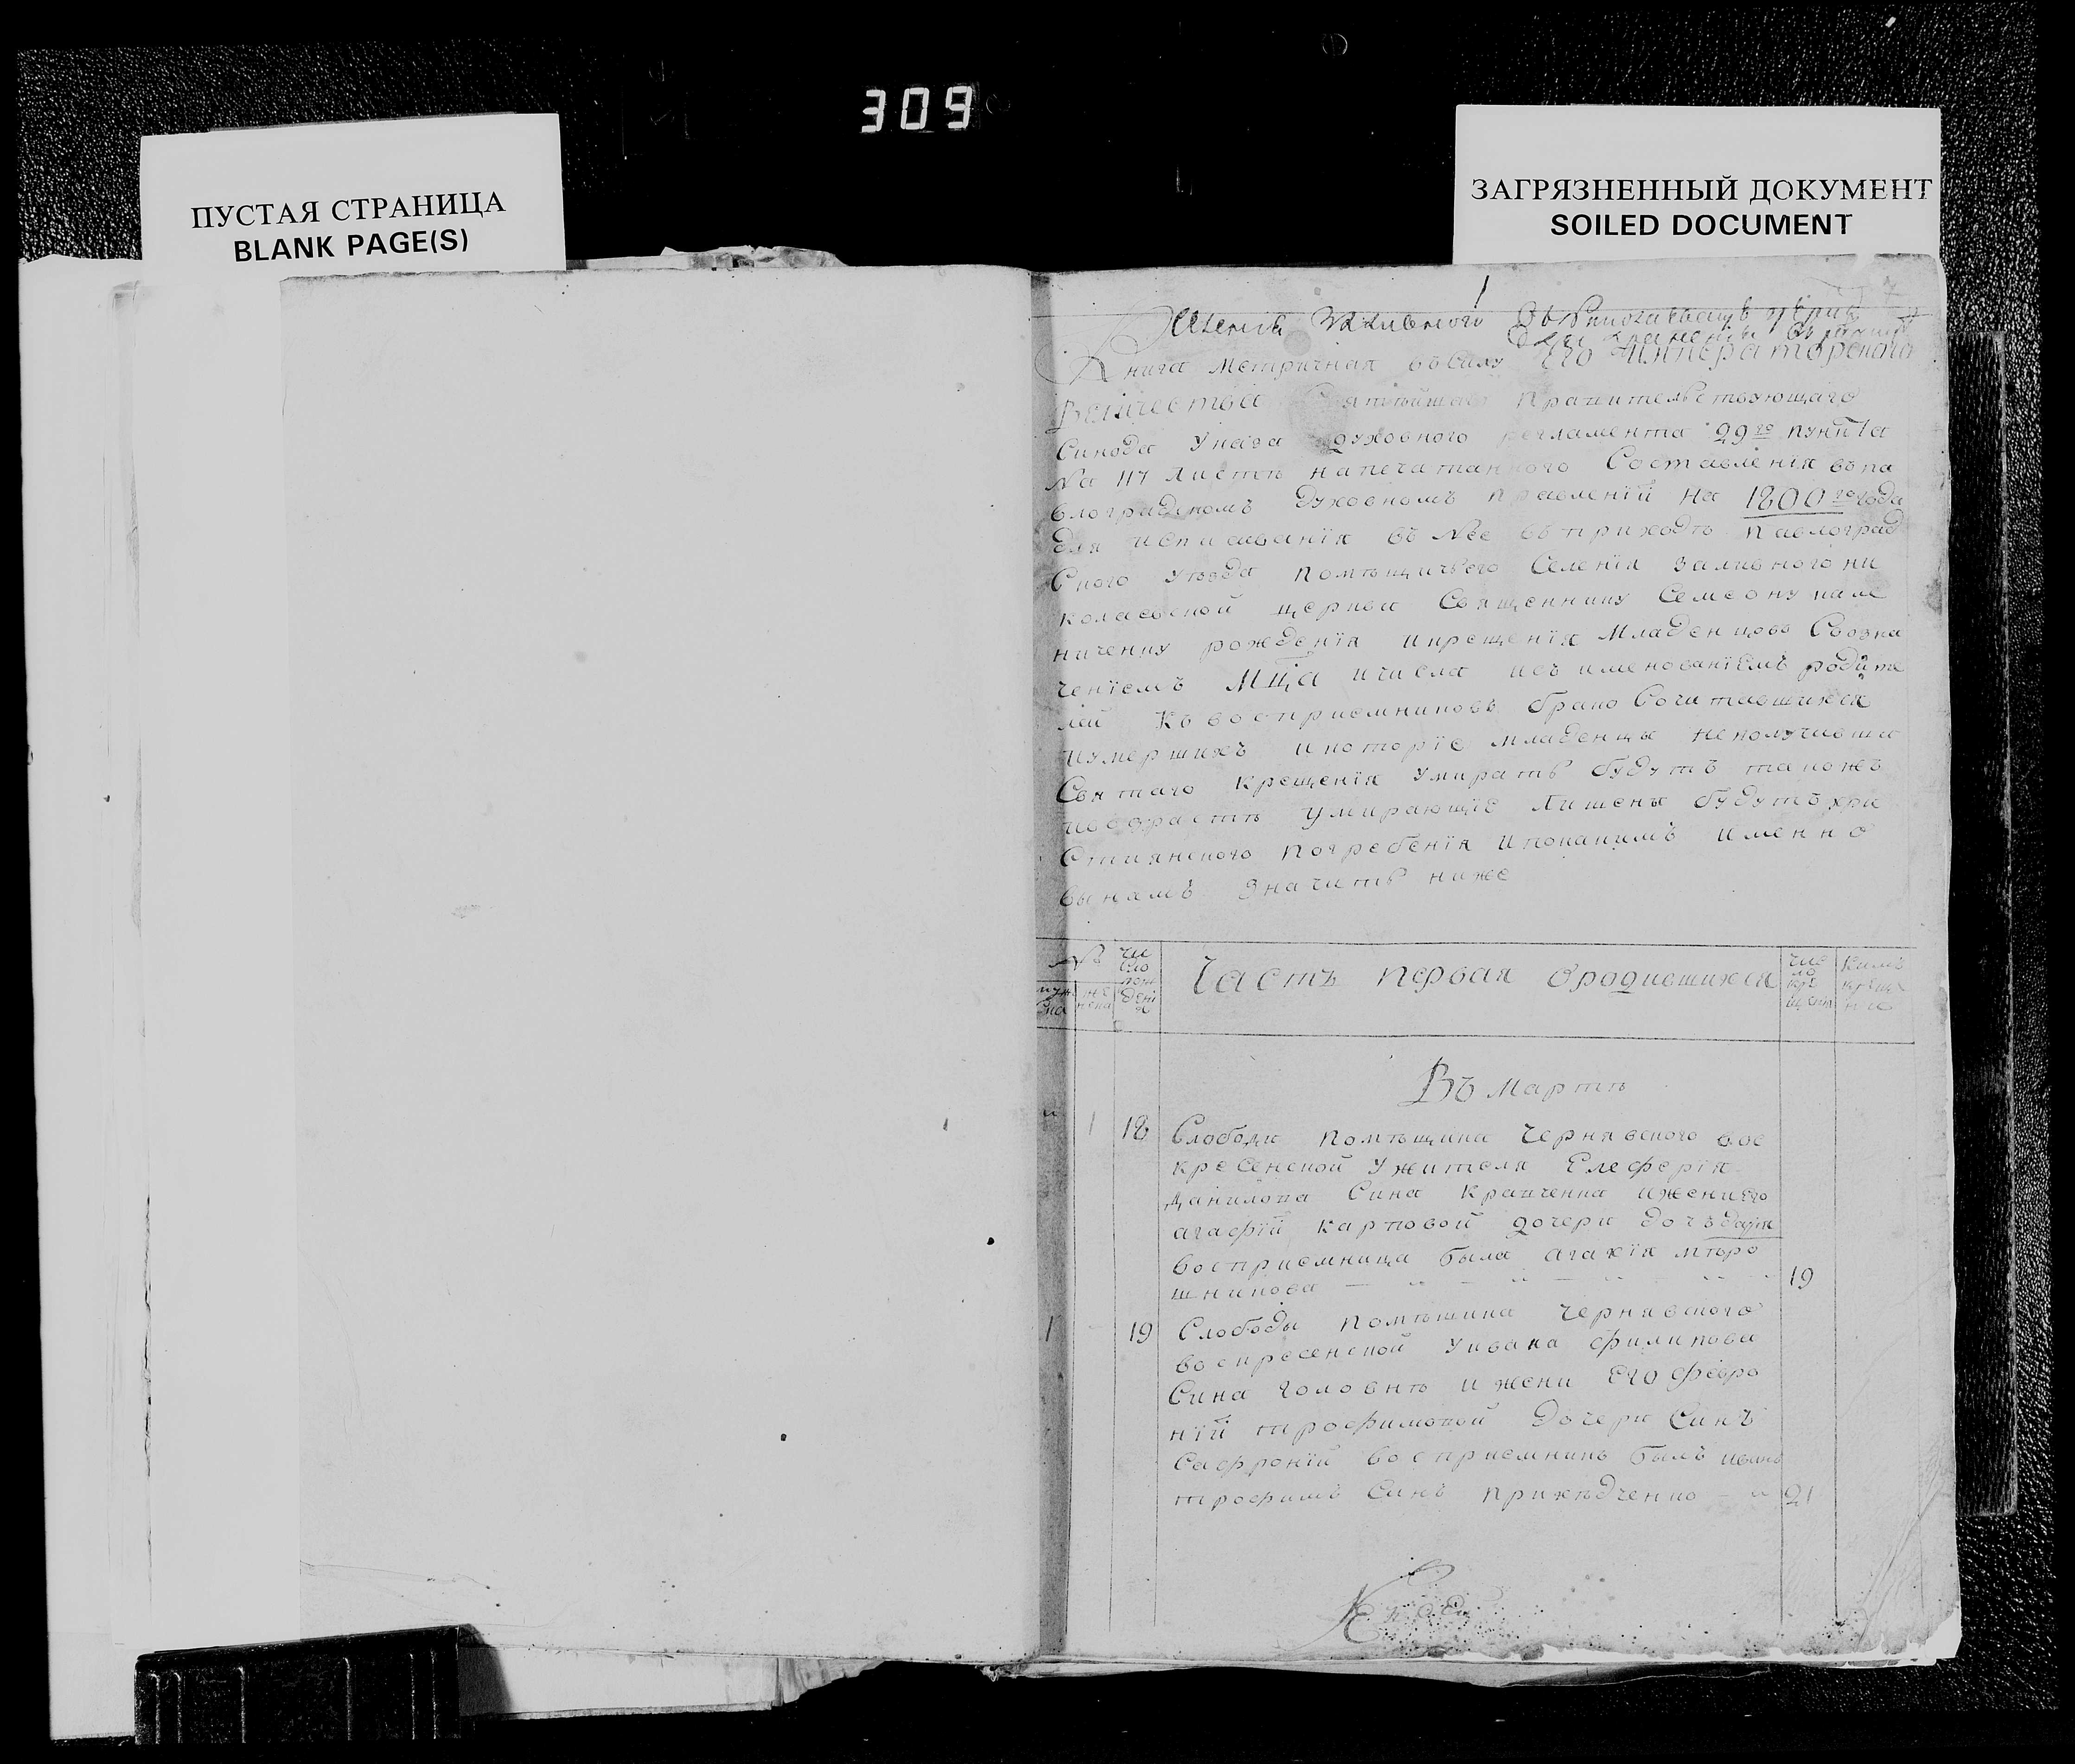 309
ПУСТАЯ СТРАНИЦА
BLANK PAGE(S)
ЗАГРЯЗНЕННЫЙ ДОКУМЕНТ
SOILED DOCUMENT
1
7
Заливного
Книга Метричная въ Силу Его Императорскаго
Величества Святѣйшаго Правительствующаго
Синода Указа духовного регламента 29го пункта
На 117 листѣ напечатанного Составленїя въ па
влоградскомъ духовномъ правленїи на 1800го года
для исписыванїя въ Нее въ приходѣ павлоград
Ского уѣзда помѣщичьего Селенїя заливного ни
колаевской церкви Священнику Семеону
рожденїя и крещенїя Младенцовъ Съозна
ченїемъ Мца и числа и съ именованїемъ родите
лей восприемниковъ брако Сочитавшихся
иумершихъ икоторїе младенцы неполучивши
Святаго крещенїя умирать будутъ такожъ
умирающїе лишены будутъ хри
Стиянского погребенїя ипокакимъ именно
винамъ значитъ ниже
№
муж
ска
же
нска
чи
сло
рож
денї
я
Часть первая ородившихся
чис
ло
кре
щенїя
кимъ
креще
ни
Въ Мартѣ
1 18 Слободи помѣщика Чернявского вос
кресенской ужителя Елеферїя
Данилова Сина Кравченка ижени его
агафїи карповой дочери дочь
восприемница была
шникова 19
1 19 Слободы помѣщика Чернявского
воскресенской уивана филипова
Сина головнѣ и жени Его февро
нїи трофимовой дочери Синъ
Сафронїй восприемникъ былъ иванъ
трофимъ Синъ 21